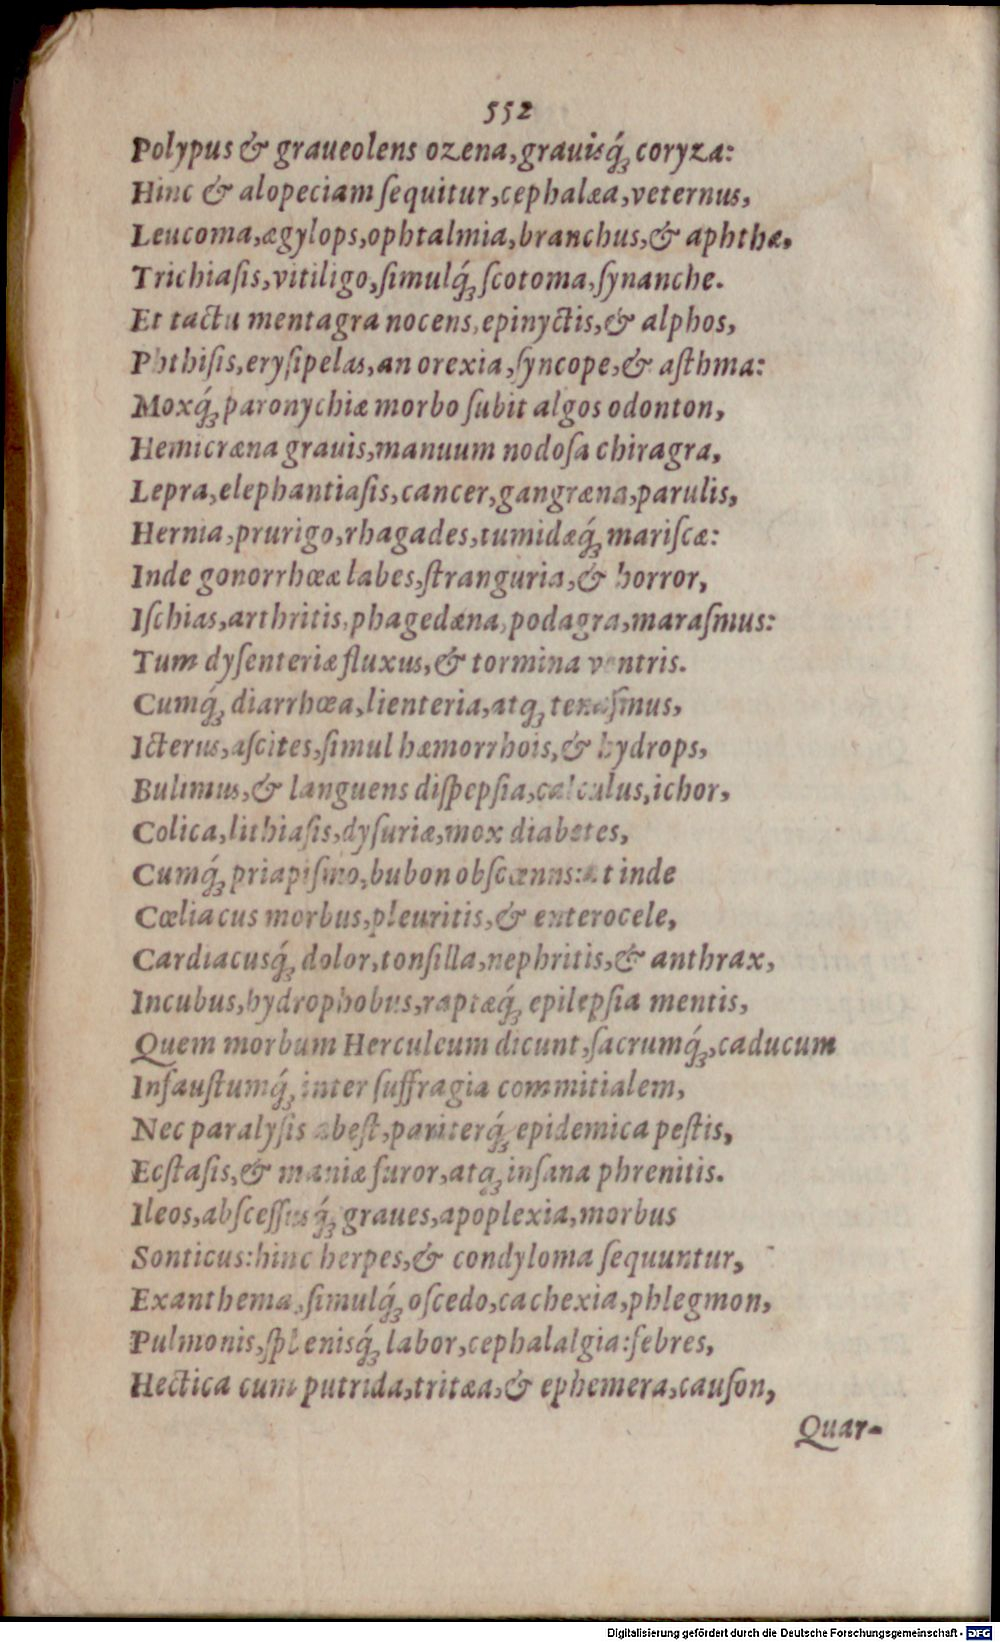 552
Polypus & graueolens ozena, grauisq́ꝫ coryza:
Hinc & alopeciam ſequitur, cephalæa, veternus,
Leucoma, ægylops, ophtalmia, branchus, & aphthæ,
Trichiaſis, vitiligo, ſimulq́ꝫ ſcotoma, ſynanche.
Et tactu mentagra nocens, epinyctis, & alphos,
Phthiſis, eryſipelas, an orexia, ſyncope, & aſthma:
Moxq́ꝫ paronychiæ morbo ſubit algos odonton,
Hemicræna grauis, manuum nodoſa chiragra,
Lepra, elephantiaſis, cancer, gangræna, parulis,
Hernia, prurigo, rhagades, tumidæq́ꝫ mariſcæ:
Inde gonorrhœæ labes, ſtranguria, & horror,
Iſchias, arthritis, phagedæna, podagra, maraſmus:
Tum dyſenteriæ fluxus, & tormina ventris.
Cumq́ꝫ diarrhœa, lienteria, atqꝫ tenaſmus,
Icterus, aſcites, ſimul hæmorrhois, & hydrops,
Bulimus, & languens diſpepſia, calculus, ichor,
Colica, lithiaſis, dyſuriæ, mox diabetes,
Cumq́ꝫ priapiſmo, bubon obſcœnus: at inde
Cœliacus morbus, pleuritis, & enterocele,
Cardiacusq́ꝫ dolor, tonſilla, nephritis, & anthrax,
Incubus, hydrophobus, raptæq́ꝫ epilepſia mentis,
Quem morbum Herculeum dicunt, ſacrumq́ꝫ, caducum
Infauſtumq́ꝫ inter ſuffragia commitialem,
Nec paralyſis abeſt, pariterq́ꝫ epidemica peſtis,
Ecſtaſis, & maniæ furor, atqꝫ inſana phrenitis.
Ileos, abſceſſusq́ꝫ graues, apoplexia, morbus
Sonticus: hinc herpes, & condyloma ſequuntur,
Exanthema, ſimulq́ꝫ oſcedo, cachexia, phlegmon,
Pulmonis, ſplenisq́ꝫ labor, cephalalgia: febres,
Hectica cum putrida, tritæa, & ephemera, cauſon,
Quar-
Digitalisierung gefördert durch die Deutsche Forschungsgemeinschaft - DFG